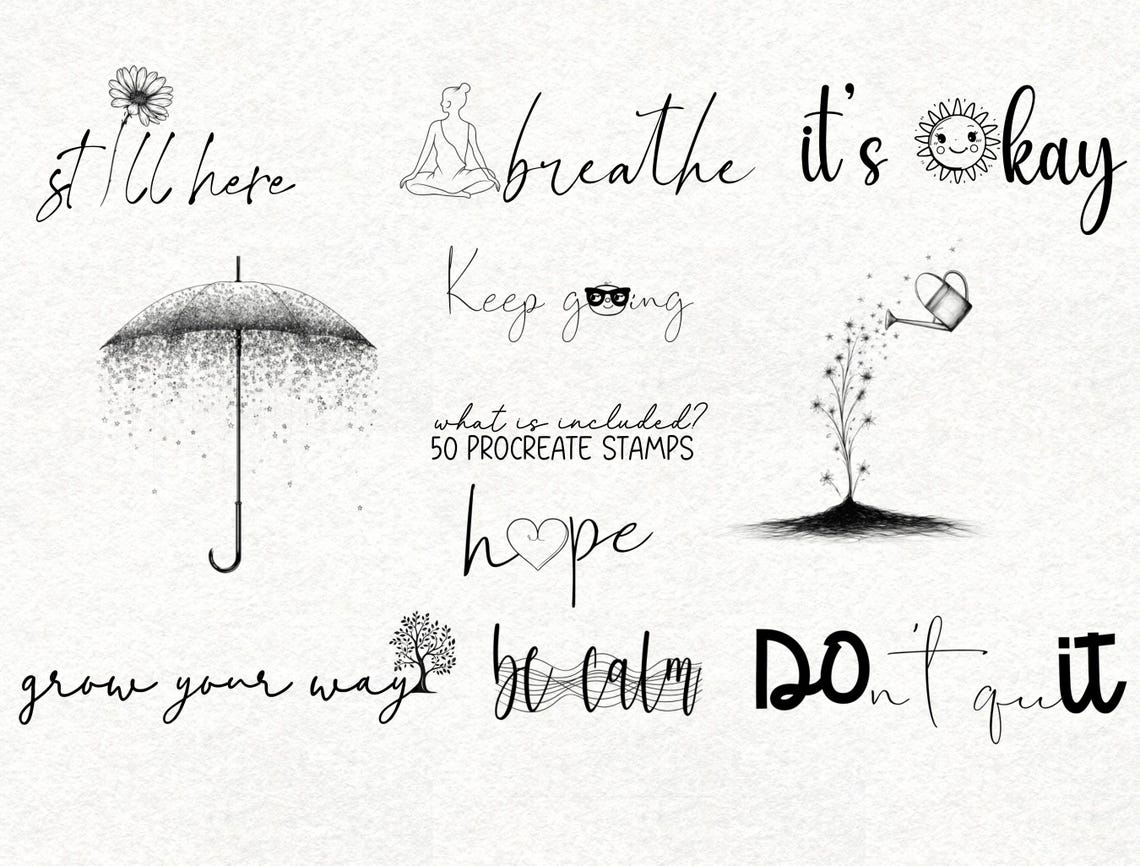 still here
breathe
it's okay
Keep going
what is included?
50 PROCREATE STAMPS
hope
grow your way
be calm
DOn't quiT